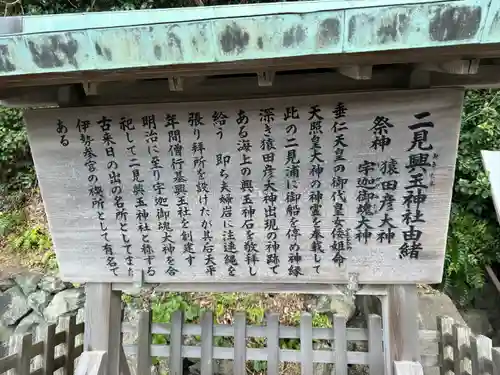 二見興玉神社由緒
おきたま
祭神 猿田彦大神
宇迦御魂大神
垂仁天皇の御代皇女倭姫命
天照皇大神の神霊を奉載して
此の二見浦に御船を停め神縁
深き猿田彦大神出現の神跡で
ある海上の興玉神石を敬拝し
給う 即ち夫婦岩に注連縄を
張り拝所を設けたが其石天平
年間僧行基興玉社を創す
明治に至り宇迦御魂大神を合
祀して二見興玉神社と称する
古来日の出の名所としてまた
伊勢参宮の禊所として有名で
ある